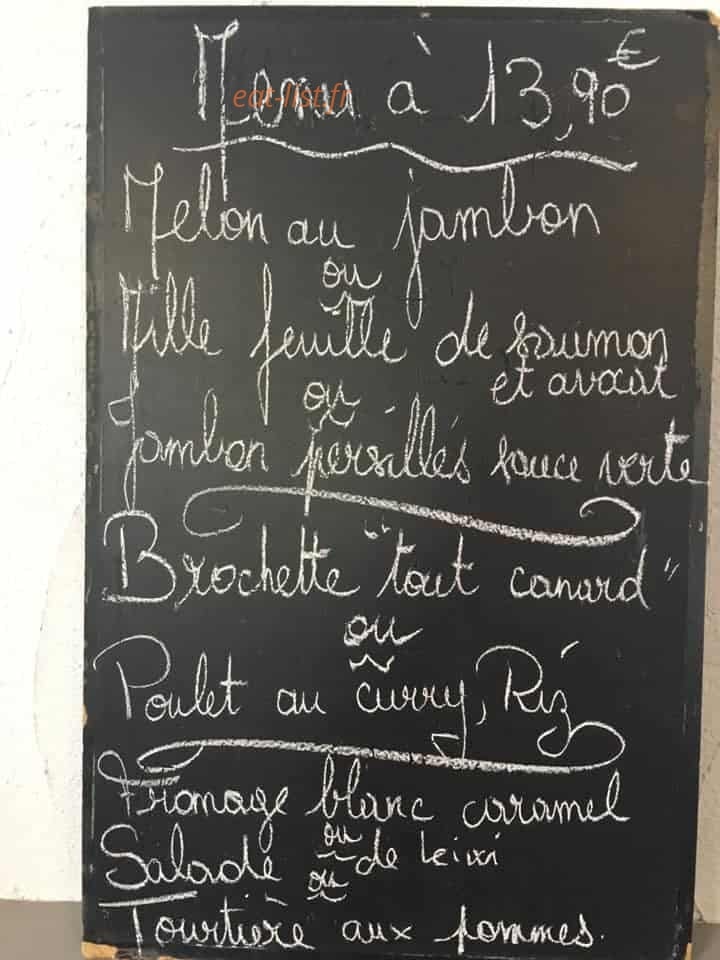 Menu à 13,90 €
eat-list.fr
Melon au jambon
ou
Mille feuille de saumon
et avocat
ou
Jambon persillés sauce verte
Brochette "tout canard"
ou
Poulet au curry, Riz
Fromage blanc caramel
ou
Salade de Leixi
ou
Tourtière aux pommes.